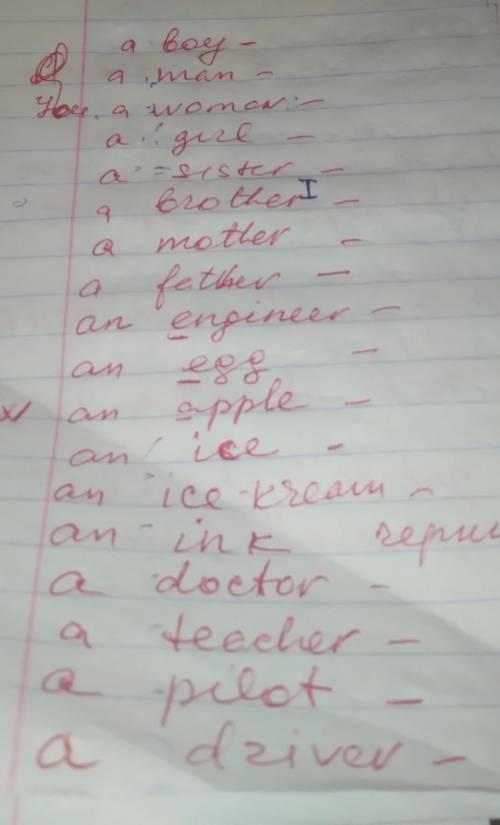 a boy -
a man -
You. a woman -
a girl -
a = sister -
a brother I -
a mother -
a father -
an engineer -
an egg -
an apple -
an ice -
an ice-kream -
an ink
a doctor -
a teacher -
a pilot -
a driver -